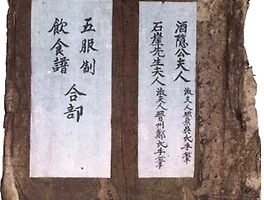 酒隱公夫人 淑夫人吳氏手筆
石崖先生夫人 淑夫人晉州鄭氏手筆
五服制
飮食譜
合部